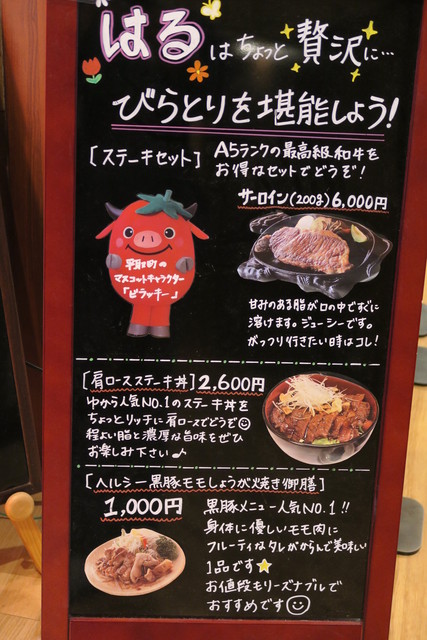 "はる はちょっと贅沢に…
びらとりを堪能しよう!
[ステーキセット]
A5ランクの最高級和牛を
お得なセットでどうぞ!
サーロイン(200g)6,000円
平取町の
マスコットキャラクター
「ビラッキー」
甘みのある脂が口の中ですぐに
溶けます。ジューシーです。
がっつり行きたい時はコレ!
[肩ロースステーキ丼]2,600円
ゆから人気NO.1のステーキ丼を
ちょっとリッチに肩ロースでどうぞ☺
程よい脂と濃厚な旨味をぜひ
お楽しみ下さい♪
[ヘルシー黒豚モモしょうが焼き御膳]
1,000円
黒豚メニュー人気NO.1!!
身体に優しいモモ肉に
フルーティなタレがからんで美味しい
1品です★
お値段もリーズナブルで
おすすめです☺